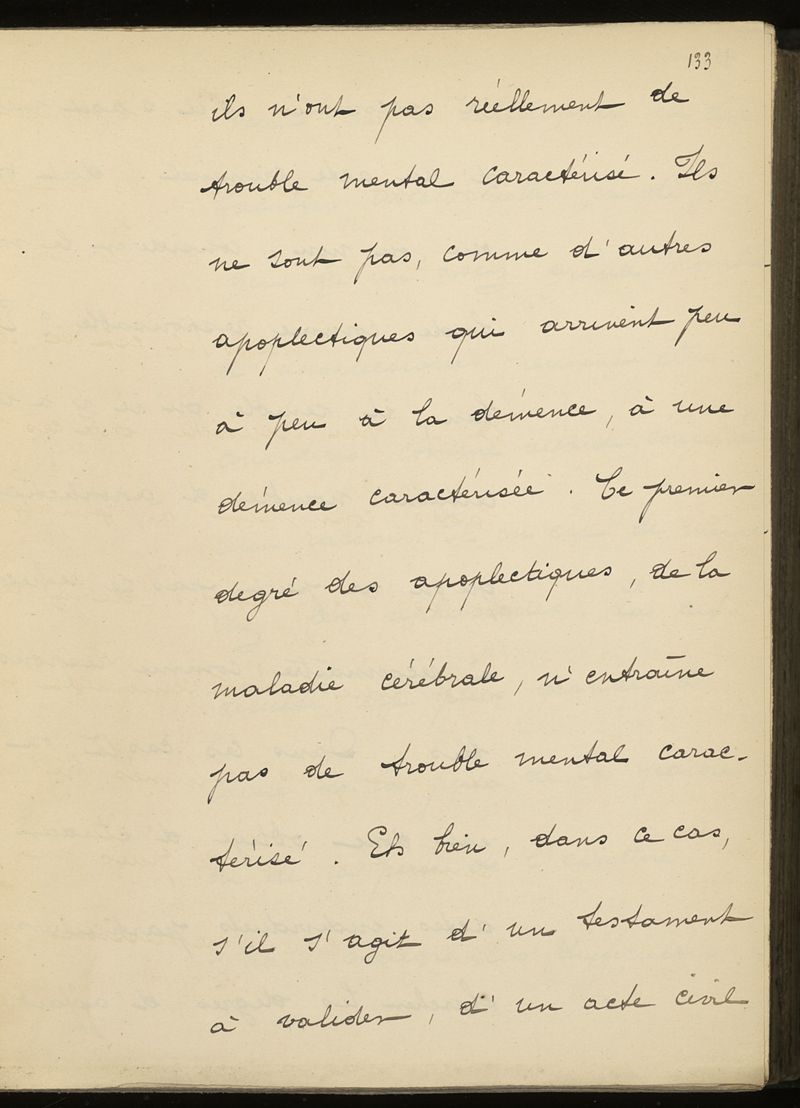 133
ils n'ont pas réellement de
trouble mental caractérisé. Ils
ne sont pas, comme d'autres
apoplectiques qui arrivent peu
à peu à la démence, à une
démence caractérisée. Ce premier
degré des apoplectiques, de la
maladie cérébrale, n'entraîne
pas de trouble mental carac-
térisé. Eh bien, dans ce cas,
s'il s'agit d'un testament
à valider, d'un acte civil